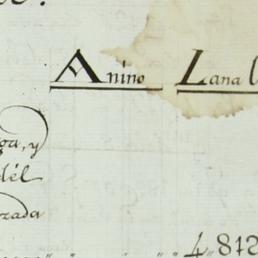 Anino Lana
y
dél
zada
4812